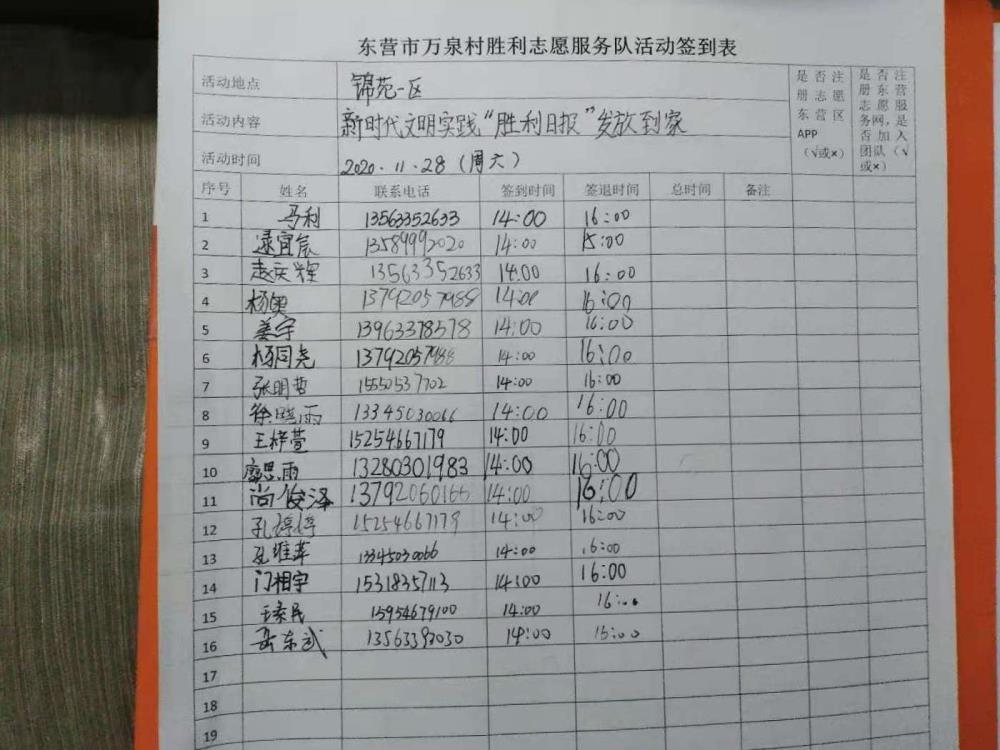 东营市万泉村胜利志愿服务队活动签到表
活动地点 锦苑一区 是否注册志愿东营区APP（√或×） 是否注册东营志愿服务网，是否加入团队（√或×）
活动内容 新时代文明实践“胜利日报”发放到家
活动时间 2020.11.28（周六）
序号 姓名 联系电话 签到时间 签退时间 总时间 备注
1 马利 13563352633 14:00 16:00
2 逯宜宸 13589992020 14:00 15:00
3 赵庆辉 13563352633 14:00 16:00
4 杨奥 13792057988 14:00 16:00
5 姜宇 13963378578 14:00 16:00
6 杨同尧 13792057988 14:00 16:00
7 张明哲 15550537702 14:00 16:00
8 徐晓雨 13345030066 14:00 16:00
9 王梓萱 15254667179 14:00 16:00
10 思雨 13280301983 14:00 16:00
11 尚俊泽 13792060165 14:00 16:00
12 孔婷婷 15254667179 14:00 16:00
13 孔维苹 13345030066 14:00 16:00
14 门相宇 15318357113 14:00 16:00
15 民 15954679100 14:00 16:00
16 岳东武 13563392030 14:00 15:00
17
18
19